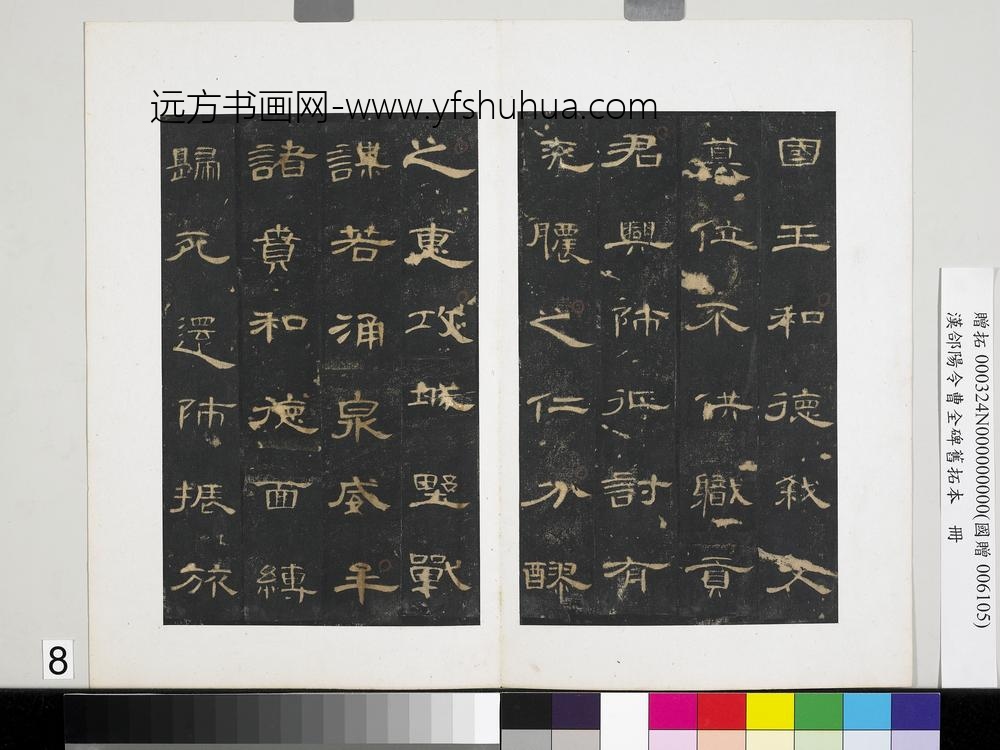 远方书画网-www.yfshuhua.com
國王和德弒父
篡位不供職貢
君興師征討有
兖膿之仁分醪
之惠攻城野戰
謀若涌泉威牟
諸賁和德面縛
歸死還師振旅
贈拓 000324N000000000(國贈 006105)
漢郃陽令曹全碑舊拓本 冊
8